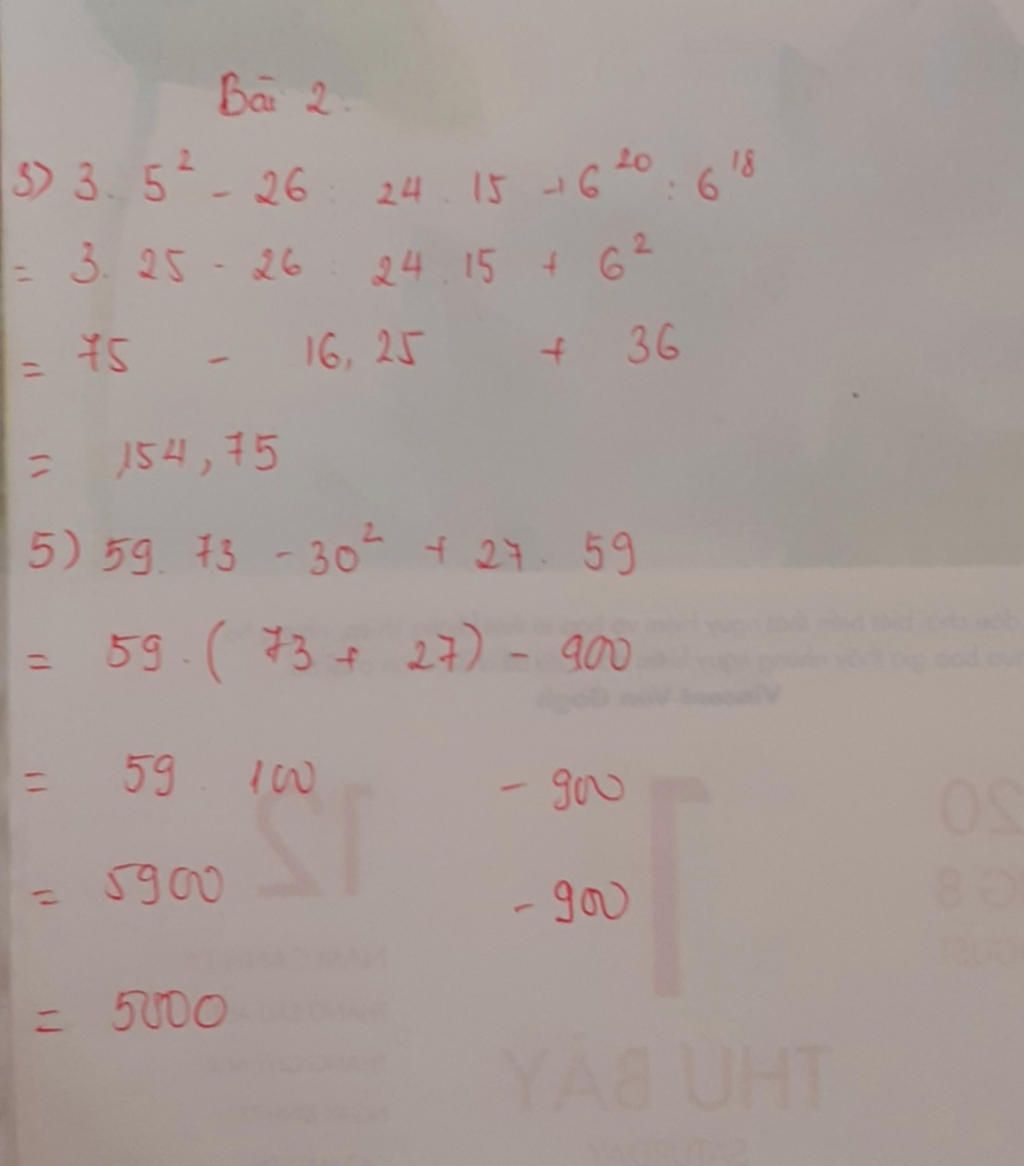 Bài 2.
3) 3. 5² - 26 : 24 . 15 + 6²⁰ : 6¹⁸
= 3. 25 - 26 : 24 . 15 + 6²
= 75 - 16, 25 + 36
= 154, 75
5) 59. 73 - 30² + 27. 59
= 59. ( 73 + 27) - 900
= 59 . 100 - 900
= 5900 - 900
= 5000
12
1
20
G 8
THỨ BẢY
Vincent Van Gogh